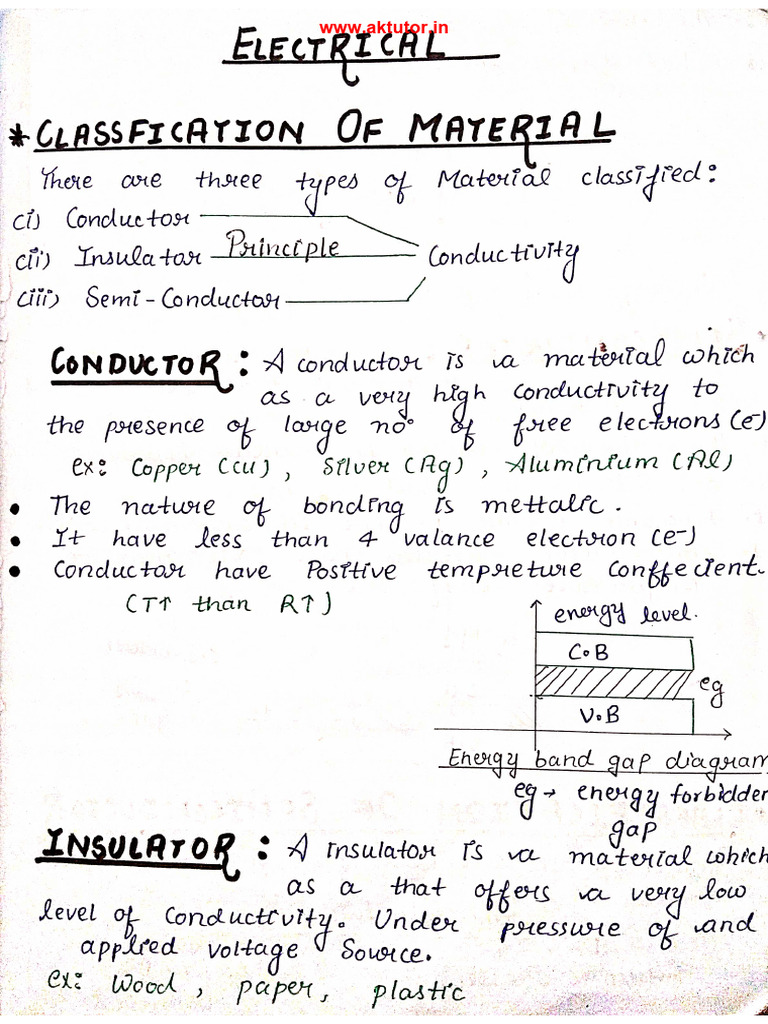 www.aktutor.in
ELECTRICAL
* CLASSFICATION OF MATERIAL
There are three types of Material classified:
(i) Conductor
(ii) Insulator Principle Conductivity
(iii) Semi-Conductor
CONDUCTOR: A conductor is a material which
as a very high conductivity to
the presence of large no. of free electrons (e-)
ex: Copper (Cu), Silver (Ag), Aluminium (Al)
• The nature of bonding is mettalic.
• It have less than 4 valance electron (e-)
• Conductor have Positive tempreture conffecient.
(T↑ than R↑)
energy level.
C.B
eg
V.B
Energy band gap diagram
eg → energy forbidden
gap
INSULATOR: A insulator is a material which
as a that offers a very low
level of conductivity. Under pressure of and
applied voltage Source.
ex: Wood, paper, plastic